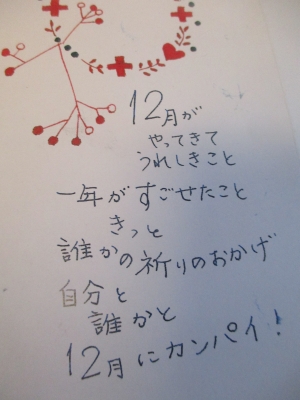 12月が
やってきて
うれしきこと
一年がすごせたこと
きっと
誰かの祈りのおかげ
自分と
誰かと
12月にカンパイ!